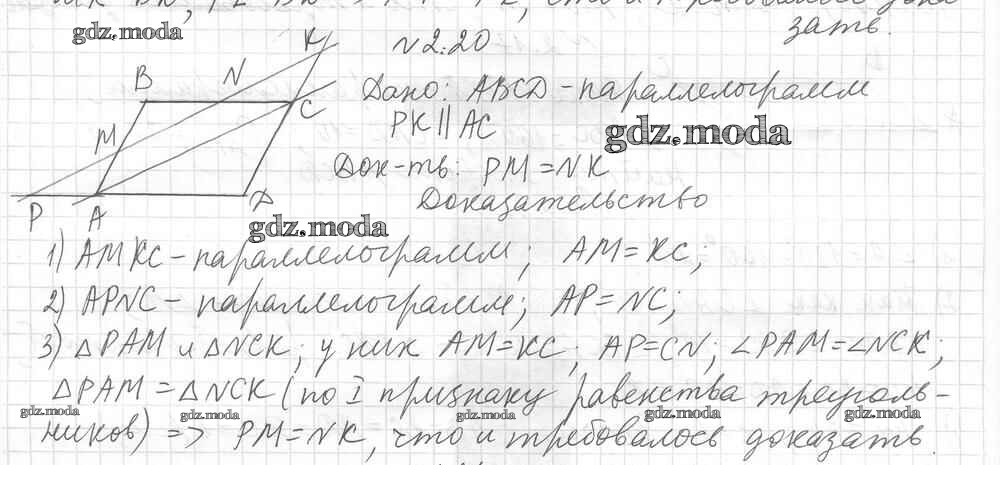 зать.
gdz.moda
N2.20
K
B N
Дано: ABCD - параллелограмм
C
M
PK || AC
gdz.moda
Док-ть: PM = NK
Доказательство
P A D
gdz.moda
1) AMKC - параллелограмм; AM = KC;
2) APNC - параллелограмм; AP = NC;
3) △PAM и △NCK; у них AM = KC; AP = CN; ∠PAM = ∠NCK;
△PAM = △NCK (по I признаку равенства треуголь-
gdz.moda gdz.moda gdz.moda gdz.moda gdz.moda
ников) => PM = NK, что и требовалось доказать.